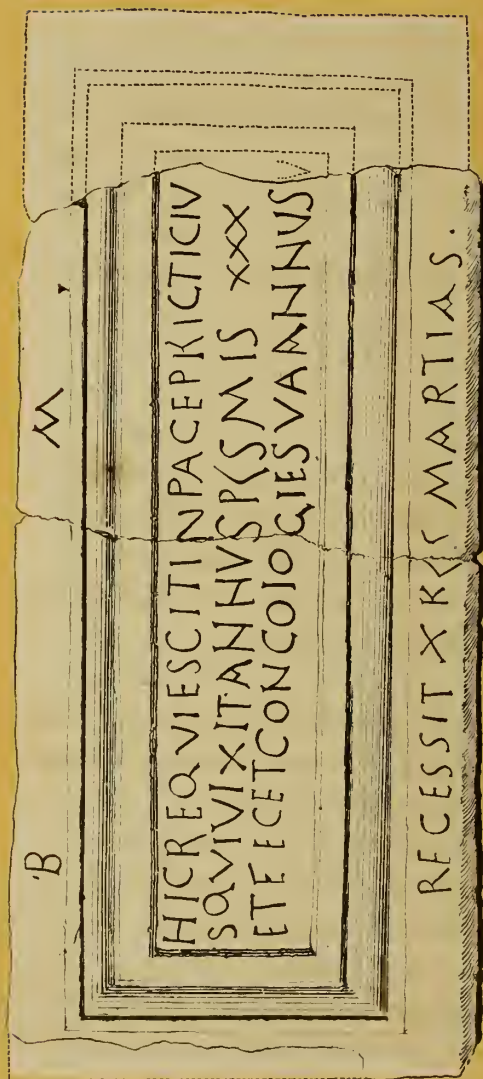 B M
HICREQVIESCITINPACEPKICTICIV
SQVIVIXITANNVSPLSMIS XXX
ETFECETCONCOIOGIESVAANNVS V
RECESSIT X KLS MARTIAS.